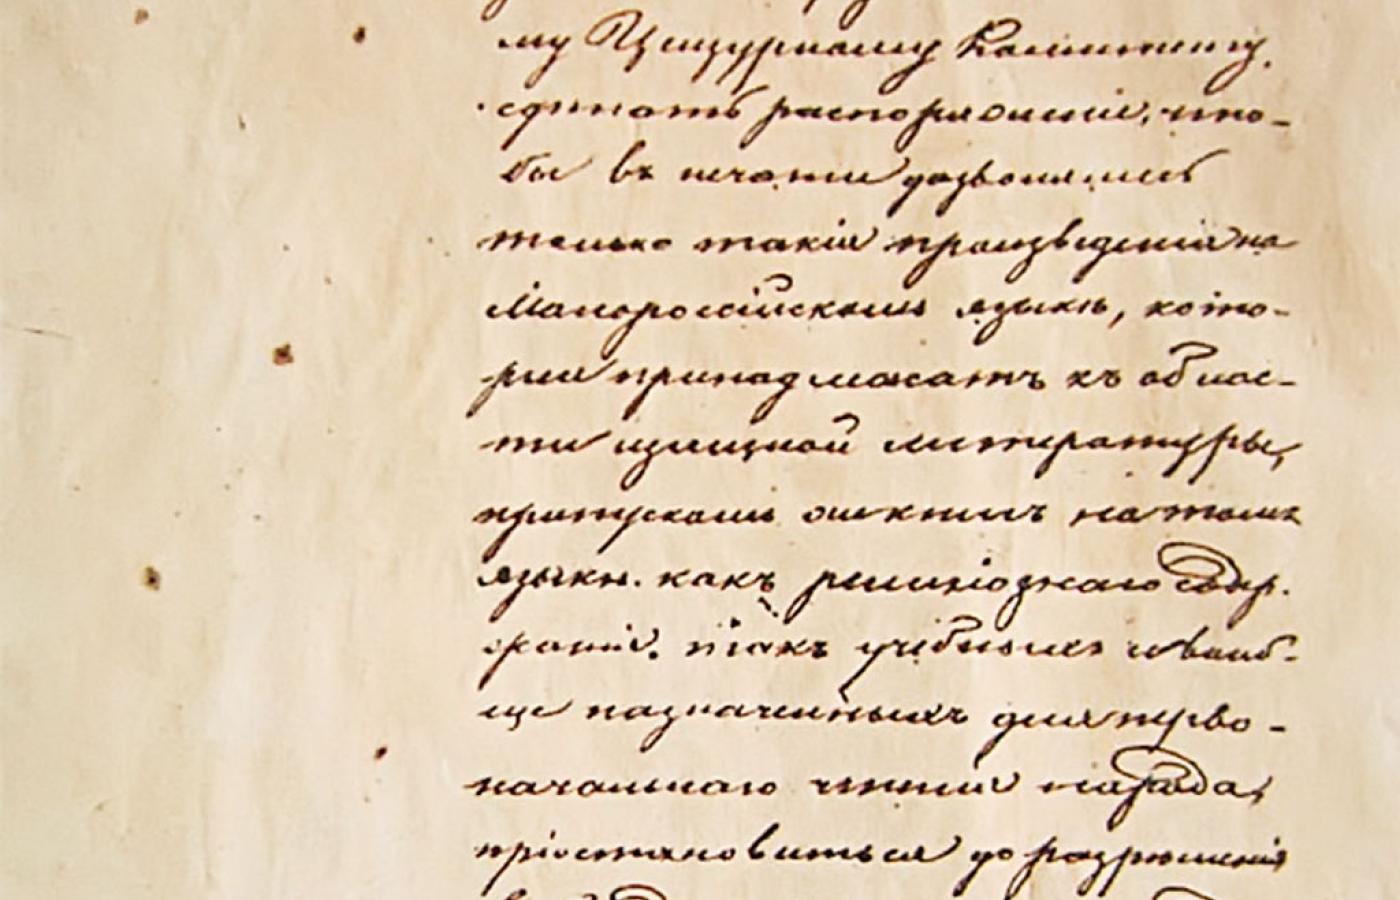 му Цензурному Комитету,
сдѣлать распоряженіе, что-
бы въ печати дозволялись
только такія произведенія на
Малороссійскомъ языкѣ, кото-
рыя принадлежатъ къ облас-
ти изящной литературы,
пропускомъ же книгъ на томъ
языкѣ, какъ религіознаго содер-
жанія, такъ учебныхъ и вооб-
ще назначенныхъ для перво-
начальнаго чтенія народа,
пріостановиться до разрѣшенія